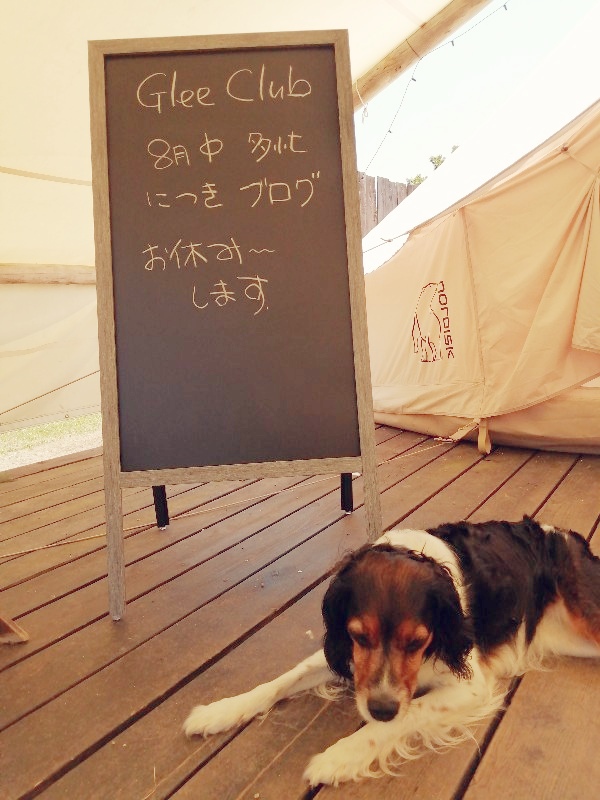 Glee Club
8月中 多忙
につき ブログ
お休み〜
します.
nordisk